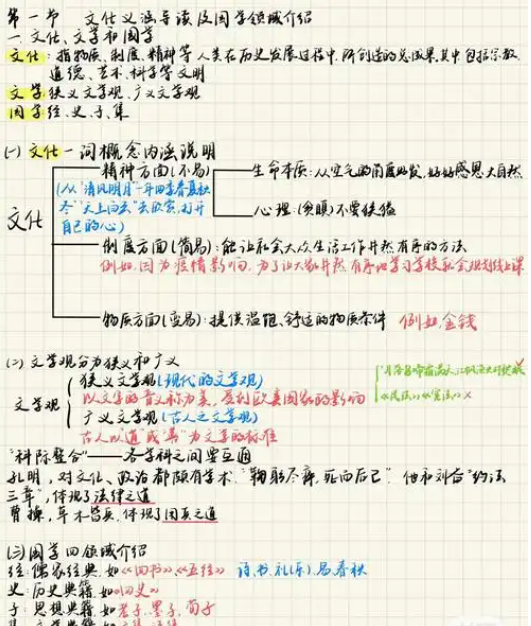 第一节 文化义涵导读及国学领域介绍
一.文化、文学和国学
文化:指物质、制度、精神等人类在历史发展过程中,所创造的总成果,其中包括宗教、
道德、艺术、科学等文明
文学:狭义文学观、广义文学观
国学:经、史、子、集
(一) 文化一词概念内涵说明
文化
精神方面(不易)
(从"清风明月"一年四季春夏秋
冬"天上白云"去欣赏,打开
自己的心)
生命本质:从空气的角度出发,好好感恩大自然
心理:不要狭隘
制度方面(简易):能让社会大众生活工作井然有序的方法
例如,因为疫情影响,为了让大家井然有序地学习学校就会规划线上课
物质方面(变易):提供温饱、舒适的物质条件 例如,金钱
(二) 文学观分为狭义和广义
文学观
狭义文学观(现代的文学观)
以文字的音义称为美,受到欧美国家的影响
广义文学观(古人之文学观)
古人以道"或"善"为文学的标准
"科际整合"——各学科之间要互通
孔明,对文化、政治都颇有学术."鞠躬尽瘁,死而后已" 他和刘备"约法
三章",体现了法律之道
曹操,草木皆兵,体现了用兵之道
(三)国学四领域介绍
经:儒家经典,如《四书》、《五经》 诗、书、礼(乐)、易、春秋
史:历史典籍,如《四史》
子:思想典籍,如老子、墨子、荀子